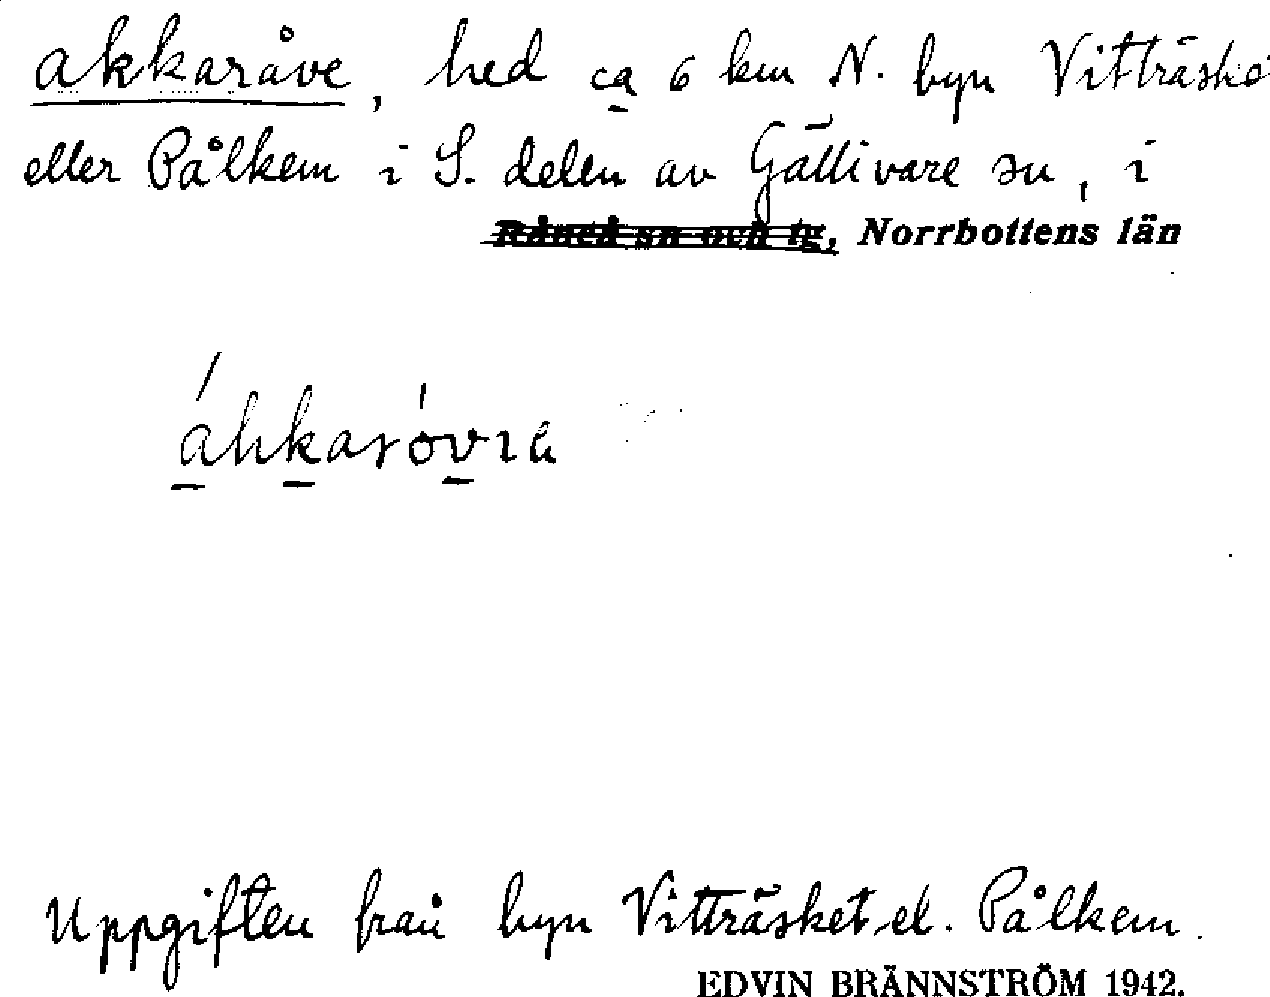 akkaråve, hed ca 6 km N. byn Vitträske
eller Pålkem i S. delen av Gällivare sn, i
Råneå sn och tg, Norrbottens län
áhkaróvıa
Uppgiften från byn Vitträsket el. Pålkem.
EDVIN BRÄNNSTRÖM 1942.